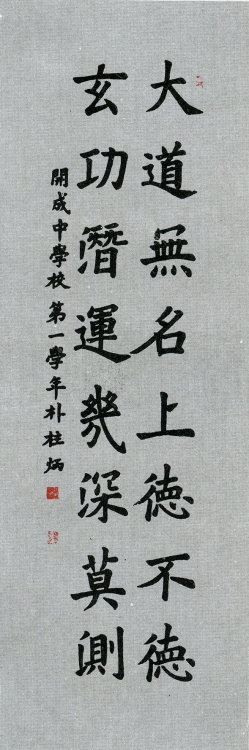 大道無名上德不德
玄功潛運幾深莫測
開成中學校 第一學年 朴柱炳